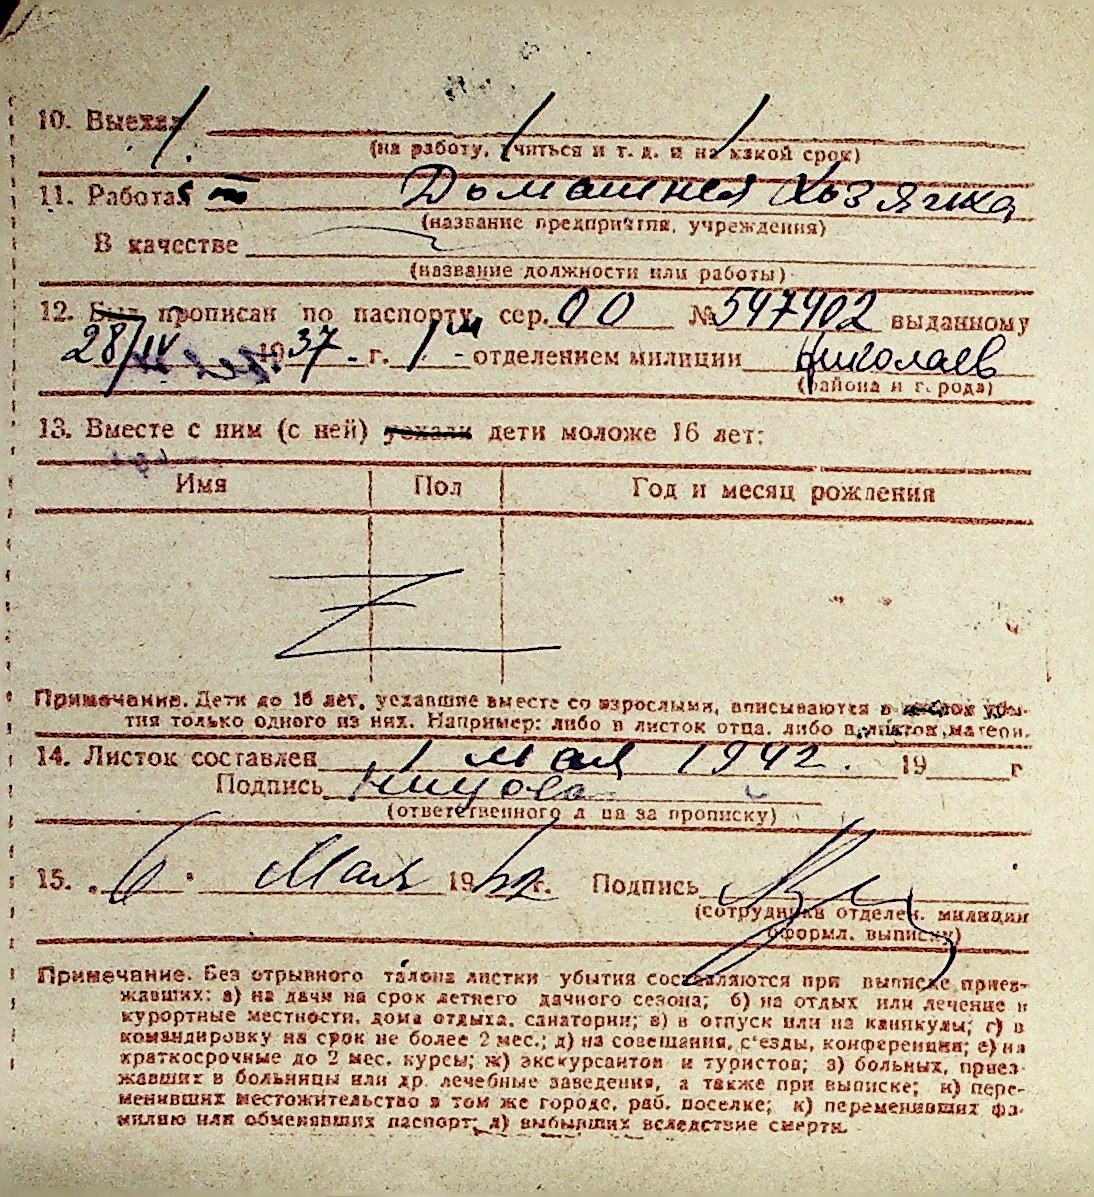 10. Выехал
(на работу, учиться и т. д. и на какой срок)
11. Работал Домашнея Хозяика
(название предприятия, учреждения)
В качестве
(название должности или работы)
12. Был прописан по паспорту сер. 00 № 547402 выданному
28/IV 1937 г. 1ым отделением милиции Николаев
(района и города)
13. Вместе с ним (с ней) уехали дети моложе 16 лет:
Имя Пол Год и месяц рождения
Примечание. Дети до 16 лет, уехавшие вместе со взрослыми, вписываются в листок убы-
тия только одного из них. Например: либо в листок отца, либо в листок матери.
14. Листок составлен 1 мая 1942. 19 г
Подпись
(ответственного лица за прописку)
15. „6" Мая 1942 г. Подпись
(сотрудника отделен. милиции
оформл. выписку)
Примечание. Без отрывного талона листки убытия составляются при выписке приез-
жавших: а) на дачи на срок летнего дачного сезона; б) на отдых или лечение в
курортные местности, дома отдыха, санатории; в) в отпуск или на каникулы; г) в
командировку на срок не более 2 мес.; д) на совещания, с'езды, конференции; е) на
краткосрочные до 2 мес. курсы; ж) экскурсантов и туристов; з) больных, приез-
жавших в больницы или др. лечебные заведения, а также при выписке; и) пере-
менивших местожительство в том же городе, раб. поселке; к) переменивших фа-
милию или обменявших паспорт; л) выбывших вследствие смерти.